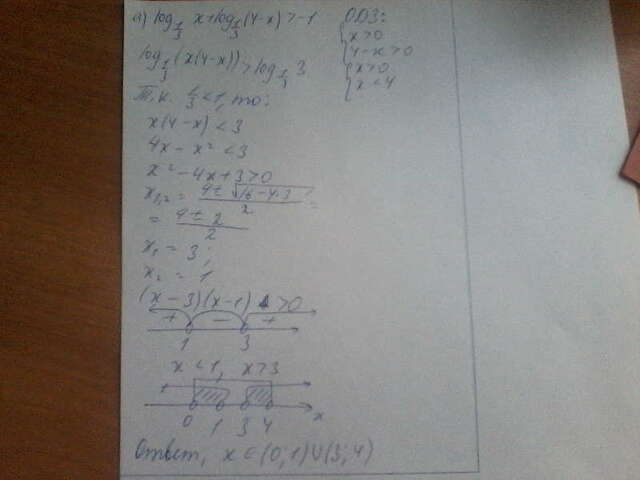 а) log_{1/3} x + log_{1/3} (4-x) > -1
О.О.З.:
{ x > 0
4 - x > 0
{ x > 0
x < 4
log_{1/3} (x(4-x)) > log_{1/3} 3
Т.к. 1/3 < 1, то:
x(4-x) < 3
4x - x² < 3
x² - 4x + 3 > 0
x_{1,2} = (4 ± √(16 - 4·3))/2 =
= (4 ± 2)/2
x₁ = 3;
x₂ = 1
(x - 3)(x - 1) > 0
+ - +
1 3
x < 1, x > 3
0 1 3 4 x
Ответ, x ∈ (0; 1) ∪ (3; 4)